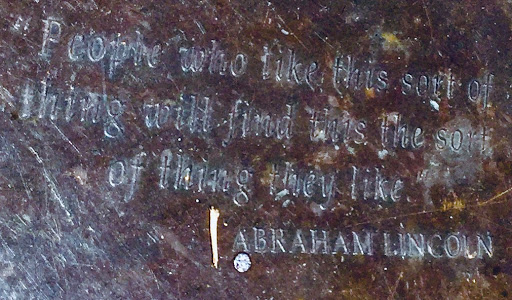 "People who like this sort of
thing will find this the sort
of thing they like."
ABRAHAM LINCOLN